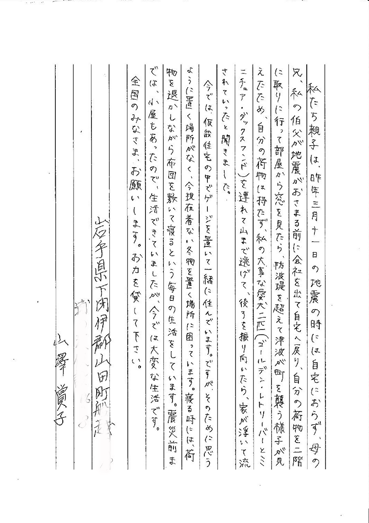 私たち親子は、昨年三月十一日の地震の時には自宅におらず、母の
兄、私の伯父が地震がおさまる前に会社を出て自宅へ戻り、自分の荷物を二階
に取りに行って部屋から窓を見たら、防波堤を超えて津波が町を襲う様子が見
えたため、自分の荷物は持たず、私の大事な愛犬二匹（ゴールデン・レトリーバーとミ
ニチュア・ダックスフンド）を連れて山まで逃げて、後ろを振り向いたら、家が浮いて流
されていったと聞きました。
今では仮設住宅の中でゲージを置いて一緒に住んでいます。ですが、そのために思う
ように置く場所がなく、今現在着ない冬物を置く場所に困っています。寝る時には、荷
物を退かしながら布団を敷いて寝るという毎日の生活をしています。震災前ま
では、小屋もあったので、生活できていましたが、今では大変な生活です。
全国のみなさま、お願いします。お力を貸して下さい。
岩手県下閉伊郡山田町船越
山澤 子